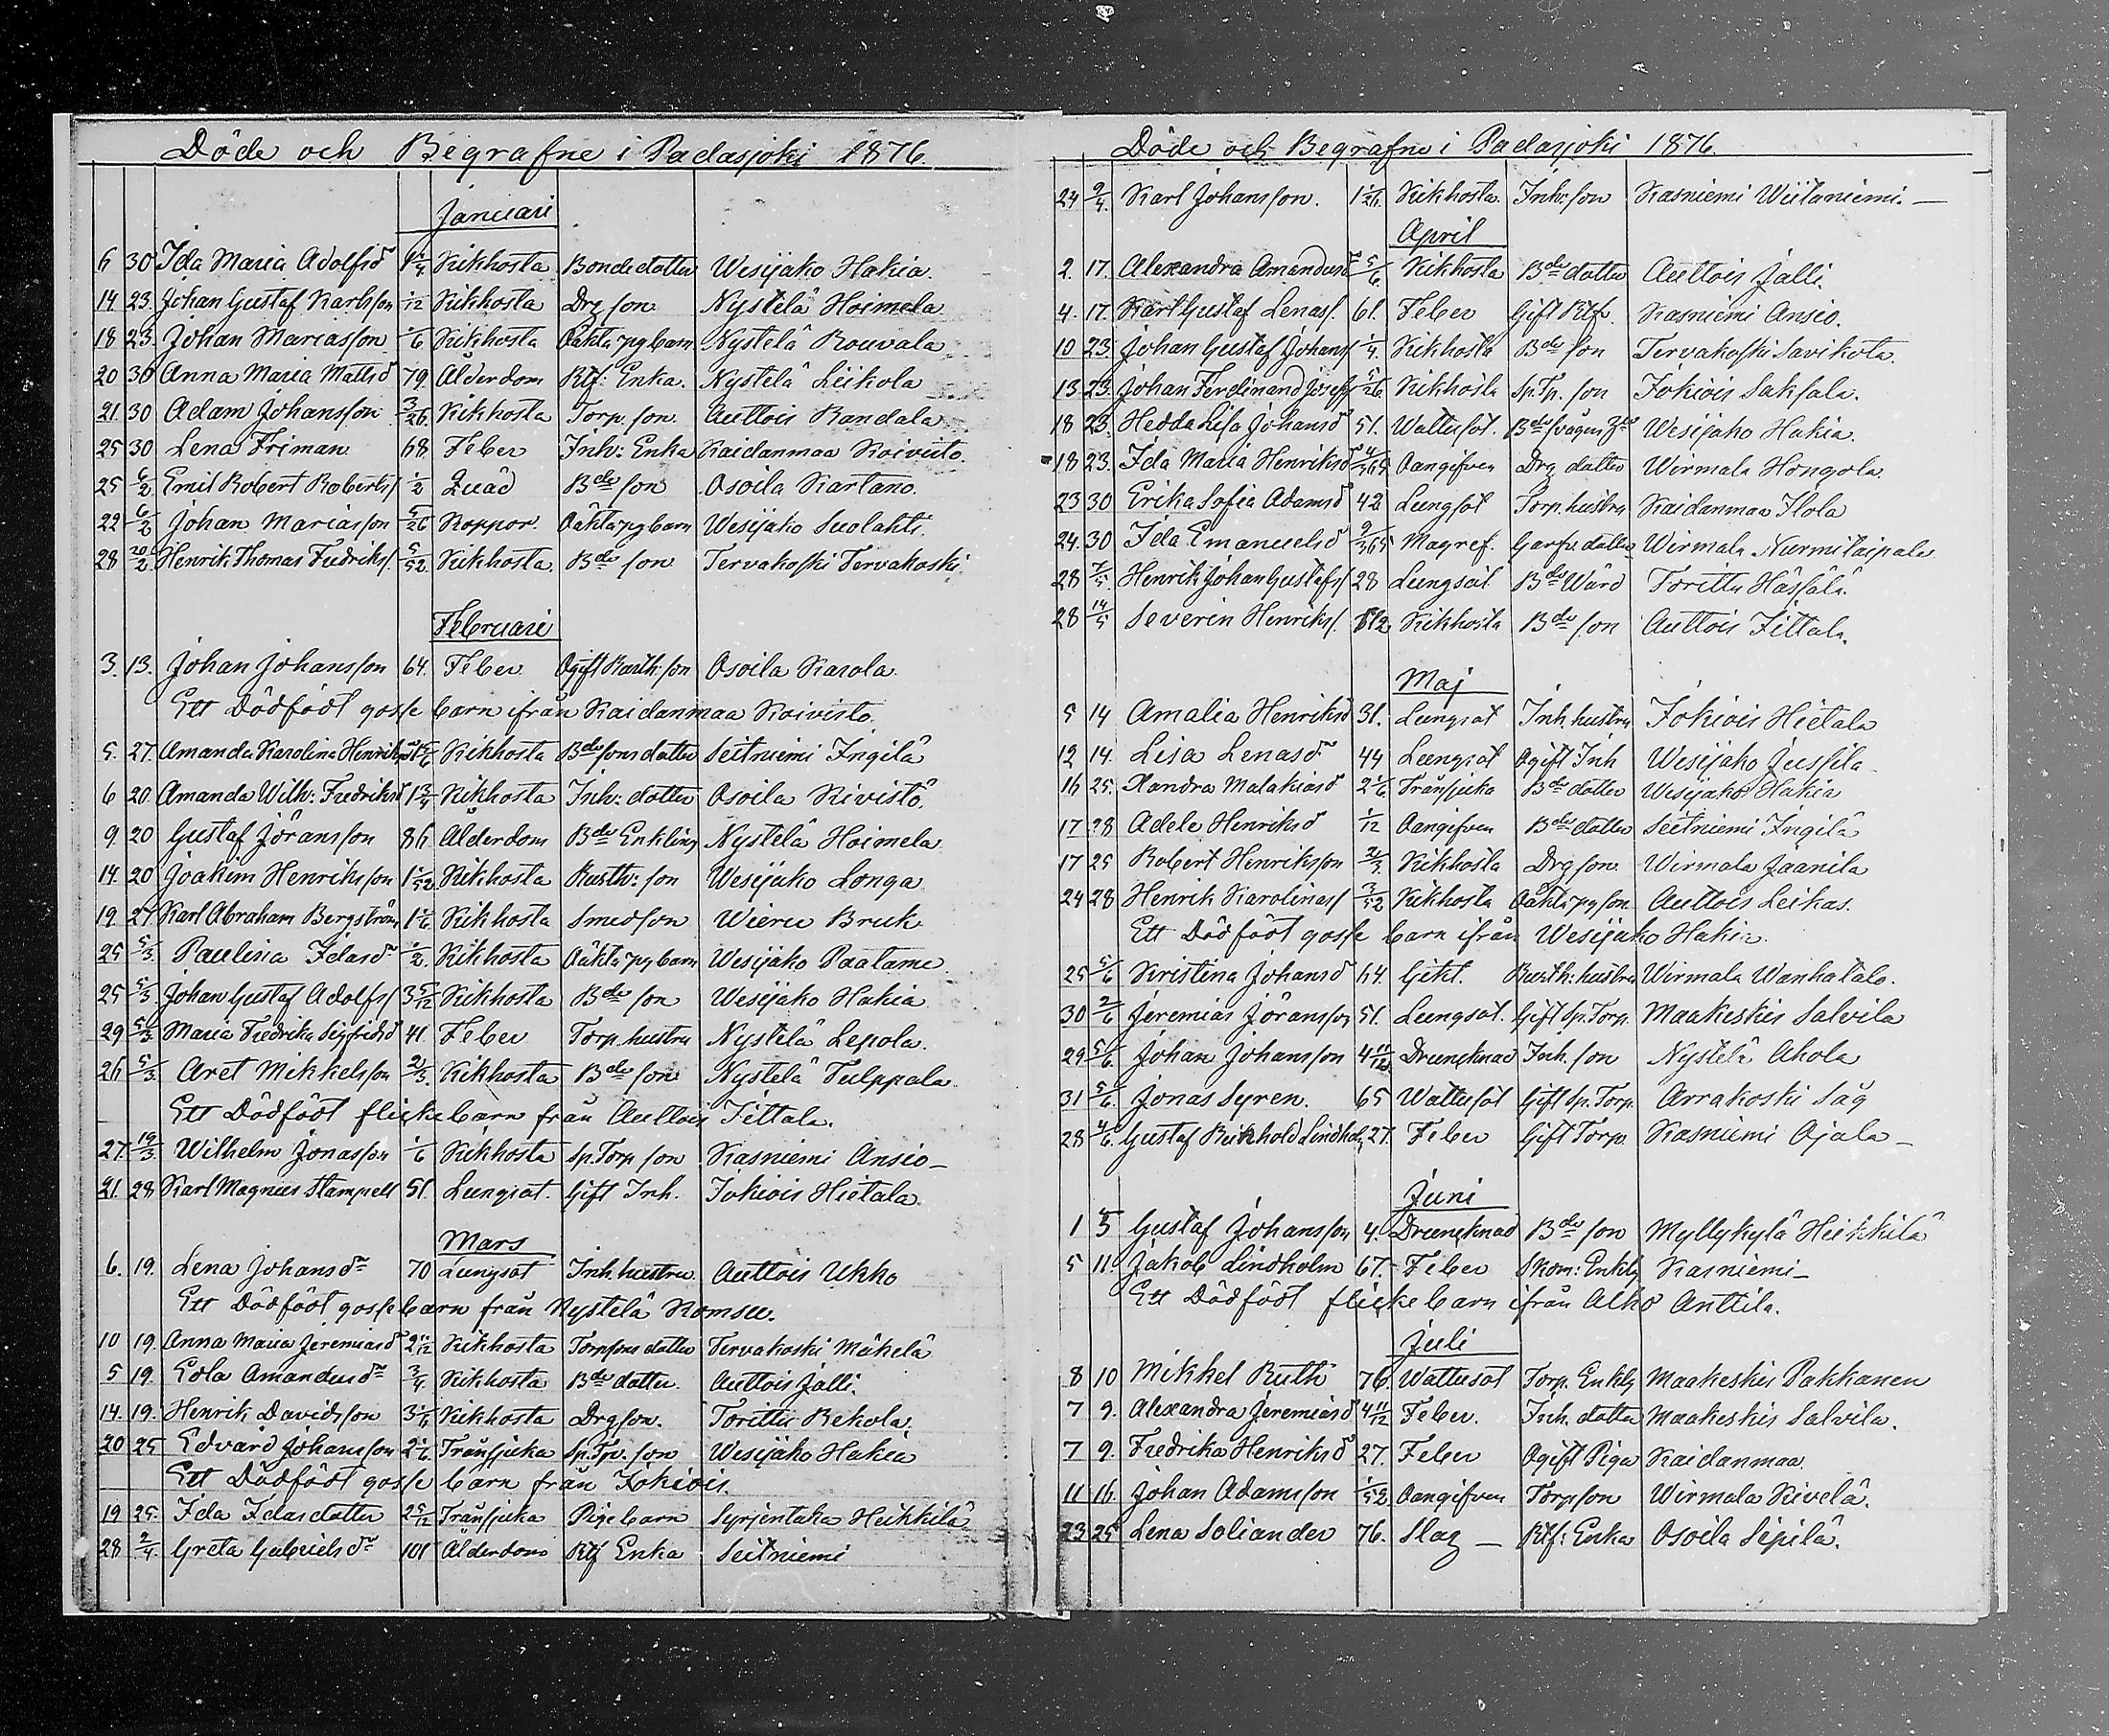 Döde och Begrafne i Padasjoki 1876.
Januari
6 30 Ida Maria Adolfsd 1 1/4 Kikhosta Bondedotter Wesijako Hakia
14 23. Johan Gustaf Karlsson 1/12 Kikhosta Drg son Nystelä Hoimela
18 23. Johan Mariasson 1/6 Kikhosta Oäkta pg barn Nystelä Rouvala
20 30 Anna Maria Mattsd 79. Ålderdom Rtf: Enka. Nystelä Liikola
21. 30 Adam Johansson 3/26 Kikhosta Torp. son. Auttois Randala
25 30 Lena Friman 68 Feber Inh: Enka Kaidanmaa Koivisto.
25 6/2 Emil Robert Roberts/ 1/2 Quäd Bde son Osoila Kartano.
22 6/2 Johan Mariasson 5/26 Koppor. Oäkta pg barn Wesijako Suolahti.
28 20/2 Henrik Thomas Fredriks/. 5/52 Kikhosta. Bde son Tervakoski Tervakoski
Februari
3. 13. Johan Johansson 64. Feber Ogift Rusth: son Osoila Karola
Ett Dödfödt gosse barn ifrån Kaidanmaa Koivisto.
5. 27. Amanda Karolina Henriksd Kikhosta Bde sons dotter Seitniemi Ingilä
6 20 Amanda Wilh: Fredriksd 1 3/4 Kikhosta Inh: dotter Osoila Kivistö.
9. 20 Gustaf Jöransson 86 Ålderdom Bde Enkling Nystelä Hoimela
14. 20 Joakim Henriksson 1 1/52 Kikhosta Rusth: son Wesijako Longa
19. 27 Karl Abraham Bergström 1 1/6 Kikhosta Smedson Wieru Bruk
25 5/3. Paulina Idasd 1/2. Kikhosta Oäkta pg barn Wesijako Paatame
25 5/3 Johan Gustaf Adolfs/ 3 5/12 Kikhosta Bde son Wesijako Hakia
29 5/3 Maria Fredrika Sigfridsd 41. Feber Torp. hustru Nystelä Lepola.
26 5/3. Aret Mikkelsson 2/3. Kikhosta Bde son Nystelä Tulppala
Ett Dödfödt flicke barn från Auttois Tittala.
27. 19/3 Wilhelm Jonasson 1/6 Kikhosta Sp. Torp son Kasniemi Ansio
21. 28 Karl Magnus Stampell 51. Lungsot. Gift Inh. Jokiois Hietala
Mars
6. 19. Lena Johansd 70 Lungsot Inh. hustru Auttois Ukko
Ett Dödfödt gosse barn från Nystelä Komsu.
10 19. Anna Maria Jeremiasd 2 11/12 Kikhosta Torpsons dotter Tervakoski Mäkelä
5 19. Edla Amandusd 3/4. Kikhosta Bde dotter. Auttois Jalli.
14. 19. Henrik Davidsson 3 1/6 Kikhosta Drgson. Torittu Rekola.
20 25 Edvard Johansson 2 1/6 Trånsjuka Sp. Tp. son Wesijako Hakia
Ett Dödfödt gosse barn från Jokiois.
19 25. Ida Idasdotter 2 5/12 Trånsjuka Pige barn Syrjentaka Heikkilä
28 2/4. Greta Gabrielsd 101 Ålderdom Rtf Enka Seitniemi
Döde och Begrafne i Padasjoki 1876.
24 9/4. Karl Johansson. 1 1/26. Kikhosta. Inh: son Kasniemi Wiitaniemi.
April
2. 17. Alexandra Amandusd 5/6 Kikhosta Bde dotter Auttois Jalli.
4. 17. Karl Gustaf Lenas/. 61. Feber Gift Rtf. Kasniemi Ansio.
10 23. Johan Gustaf Johans/ 1/4. Kikhosta Bde son Tervakoski Savikota.
13 23. Johan Ferdinand Josefs/ 5/26 Kikhosta Sp. Tp. son Jokiois Saksala.
18 23. Hedda Lisa Johansd 51. Wattusot. Bde svågers Wesijako Hakia.
18 23. Ida Maria Henriksd 4/365 Oangifven Drg dotter Wirmala Hongola.
23 30 Erika Sofia Adamsd 42 Lungsot Torp. hustru Kaidanmaa Ilola
24. 30 Ida Emanuelsd 9/365 Magref. Garfv. dotter Wirmala Nurmilaipale
28 7/5. Henrik Johan Gustafs/ 28 Lungsot Bde Wärd Torittu Hässälä.
28 14/5 Severin Henriks/. Kikhosta Bde son Auttois Tittala.
Maj
5 14 Amalia Henriksd 31. Lungsot Inh. hustru Jokiois Hietala
12 14. Lisa Lenasd 44 Lungsot Ogift Inh Wesijako Jussila
16 25. Xandra Malakiasd 2 1/6. Trånsjuka Bde dotter Wesijako Hakia
17 28 Adele Henriksd 1/12 Oangifven Bde dotter Seitniemi Ingilä
17 25 Robert Henriksson 2/3. Kikhosta Drg son. Wirmala Jaanila
24 28 Henrik Karolinas/ 3/52 Kikhosta Oäkta pg son Auttois Leikas.
Ett Dödfödt gosse barn ifrån Wesijako Hakia.
25 5/6 Kristina Johansd 64. Gikt. Rusth: hustru Wirmala Wanhatalo.
30 2/6 Jeremias Jöransson 51. Lungsot. Gift Sp. Torp. Maakeskis Salvila
29 5/6. Johan Johansson 4 11/12 Drunknad Inh. son Nystelä Ahola
31 5/6. Jonas Syren. 65 Wattusot Gift Sp. Torp. Arrakoski Såg
28 4/6. Gustaf Reinhold Lindholm 27. Feber Gift Torp Kasniemi Ojala
Juni
1 5 Gustaf Johansson 4. Drunknad Bde son Myllykylä Heikkilä
5 11 Jakob Lindholm 67. Feber Skom: Enkling Kasniemi
Ett Dödfödt flicke barn ifrån Alho Anttila.
Juli
8 10 Mikkel Ruth 76. Wattusot Torp. Enkling Maakeskis Pakkanen
7 9. Alexandra Jeremiasd 4 11/12 Feber. Inh. dotter Maakeskis Salvila.
7 9. Fredrika Henriksd 27. Feber Ogift Piga Kaidanmaa
11 16. Johan Adamsson 1/52 Oangifven Torpson Wirmala Kivelä.
23 25 Lena Soliander 76. Slag Rtf: Enka Osoila Sipilä.